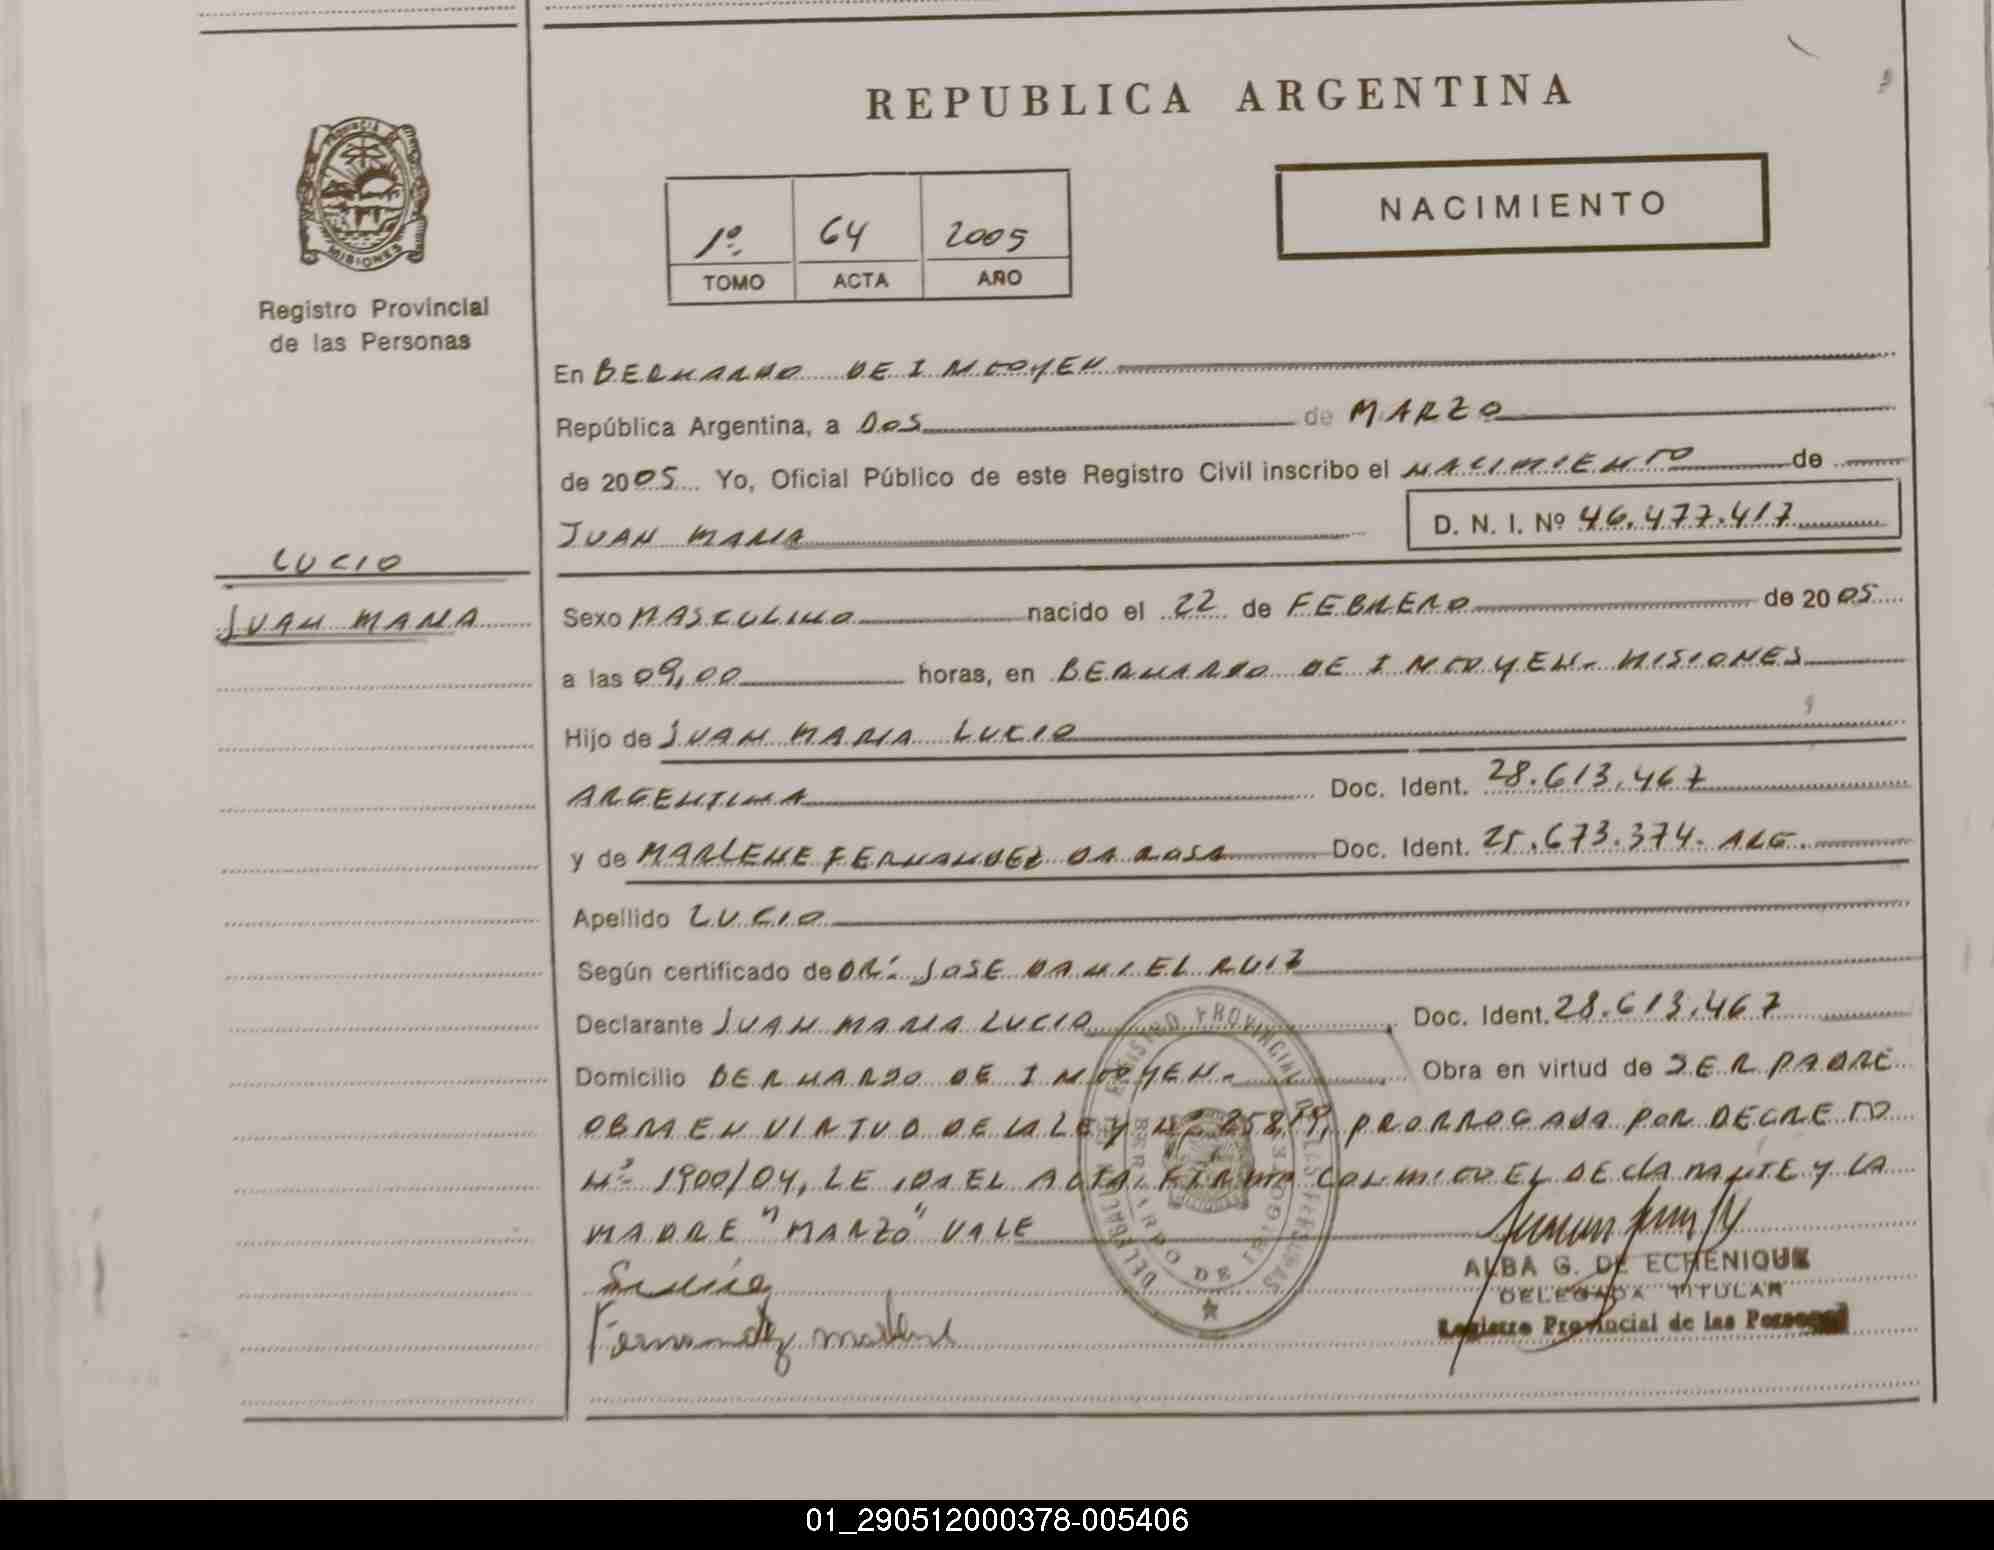 REPUBLICA ARGENTINA
PROVINCIA DE MISIONES
Registro Provincial
de las Personas
1º 64 2005
TOMO ACTA AÑO
NACIMIENTO
En BERNARDO DE IRIGOYEN
República Argentina, a DOS de MARZO
de 2005 Yo, Oficial Público de este Registro Civil inscribo el NACIMIENTO de
JUAN MARIA D. N. I. Nº 46.477.417
LUCIO
JUAN MARIA
Sexo MASCULINO nacido el 22 de FEBRERO de 2005
a las 09,00 horas, en BERNARDO DE IRIGOYEN - MISIONES
Hijo de JUAN MARIA LUCIO
ARGENTINA Doc. Ident. 28.613.467
y de MARLENE FERNANDEZ DA ROSA Doc. Ident. 25.673.374. ARG.
Apellido LUCIO
Según certificado de DR. JOSE DANIEL RUIZ
Declarante JUAN MARIA LUCIO Doc. Ident. 28.613.467
Domicilio BERNARDO DE IRIGOYEN. Obra en virtud de SER PADRE
OBRA EN VIRTUD DE LA LEY Nº 25819, PRORROGADA POR DECRETO
Nº 1900/04, LEIDA EL ACTA, FIRMA CONMIGO EL DECLARANTE Y LA
MADRE "MARZO" VALE
Fernandez Marlene
REGISTRO PROVINCIAL DE LAS PERSONAS
BERNARDO DE IRIGOYEN
ALBA G. DE ECHENIQUE
DELEGADA TITULAR
Registro Provincial de las Personas
01_290512000378-005406